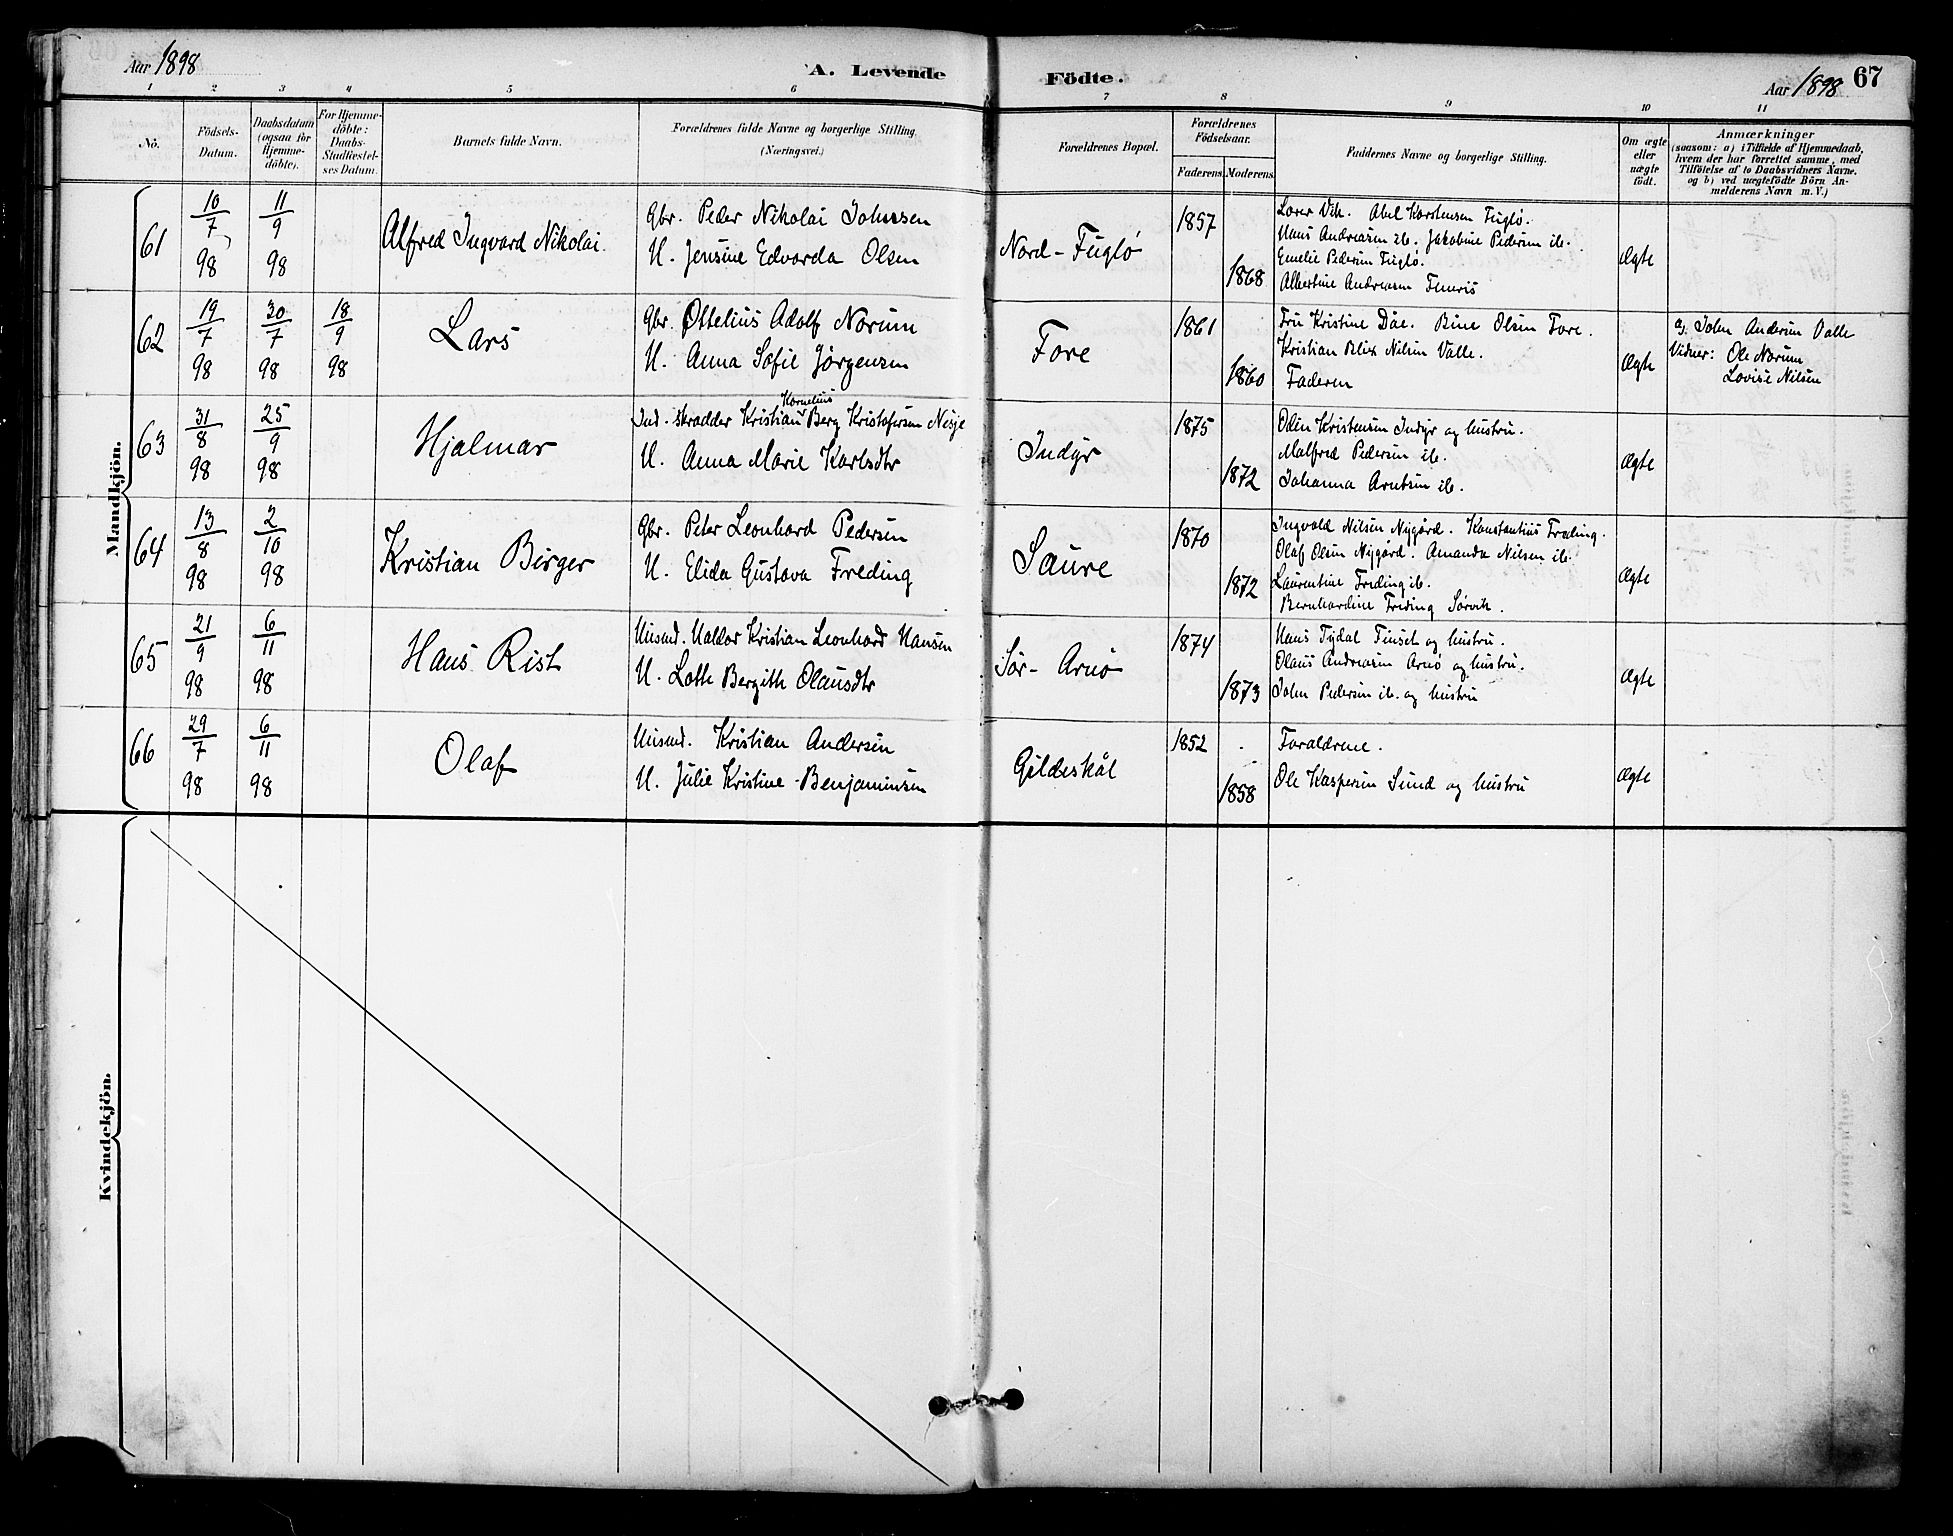 Aar 1898
A. Levende Födte.
Aar 1898
67
1 2 3 4 5 6 7 8 9 10 11
No.
Födsels-
Datum.
Daabsdatum
(ogsaa for
Hjemme-
döbte).
For Hjemme-
döbte:
Daabs-
Stadfæstel-
ses Datum.
Barnets fulde Navn.
Forældrenes fulde Navne og borgerlige Stilling.
(Næringsvei.)
Forældrenes Bopæl.
Forældrenes
Födselsaar.
Faderens. Moderens.
Faddernes Navne og borgerlige Stilling.
Om ægte
eller
uægte
födt.
Anmærkninger
(saasom: a) i Tilfælde af Hjemmedaab,
hvem der har forrettet samme, med
Tilföielse af to Daabsvidners Navne.
og b) ved uægtefödte Börn An-
melderens Navn m. V.)
Mandkjön.
61
10/7 98
11/9 98
Alfred Ingvard Nikolai
Gbr. Peder Nikolai Johnsen
H. Jensine Edvarda Olsen
Nord-Fuglø
1857
1868
Vik. Abel Karstensen Fuglø.
Hans Andreasen ib. Jakobine Pedersen ib.
Emelie Pedersen Fuglø.
Albertine Andreasen
Ægte
62
19/7 98
30/7 98
18/9 98
Lars
Gbr. Ottelius Adolf Norum
H. Anna Sofie Jørgensen
Fore
1861
1860
Fru Kristine Dåe. Bine Olsen Fore.
Kristian Blix Nilsen Valle.
Faderen
Ægte
a, John Andersen Valle
Vidner: Ole Norum
Lovise Nilsen
63
31/8 98
25/9 98
Hjalmar
Kornelius
Ind. skrædder Kristian Berg Kristofersen Nesje
H. Anna Marie Karlsdtr
Indyr
1875
1872
Odin Kristensen Indyr og hustru.
Malfred Pedersen ib.
Johanna Arntsen ib.
Ægte
64
13/8 98
2/10 98
Kristian Birger
Gbr. Peter Leonhard Pedersen
H. Elida Gustava Freding
Saure
1870
1872
Ingvald Nilsen Nygård. Konstantius Freding.
Olaf Olsen Nygård. Amanda Nilsen ib.
Laurentine Freding ib.
Bernhardine Freding Sørvik.
Ægte
65
21/9 98
6/11 98
Hans Rist
Husmd. Haldor Kristian Leonhard Hansen
H. Lotte Bergith Olausdtr
Sør-Arnø
1874
1873
Hans Tydal Finset og hustru.
Olaus Andreasen Arnø og hustru.
John Pedersen ib. og hustru
Ægte
66
29/7 98
6/11 98
Olaf
Husmd. Kristian Andersen
H. Julie Kristine Benjaminsen
Gildeskål
1852
1858
Forældrene.
Ole Kaspersen Sund og hustru
Ægte
Kvindekjön.